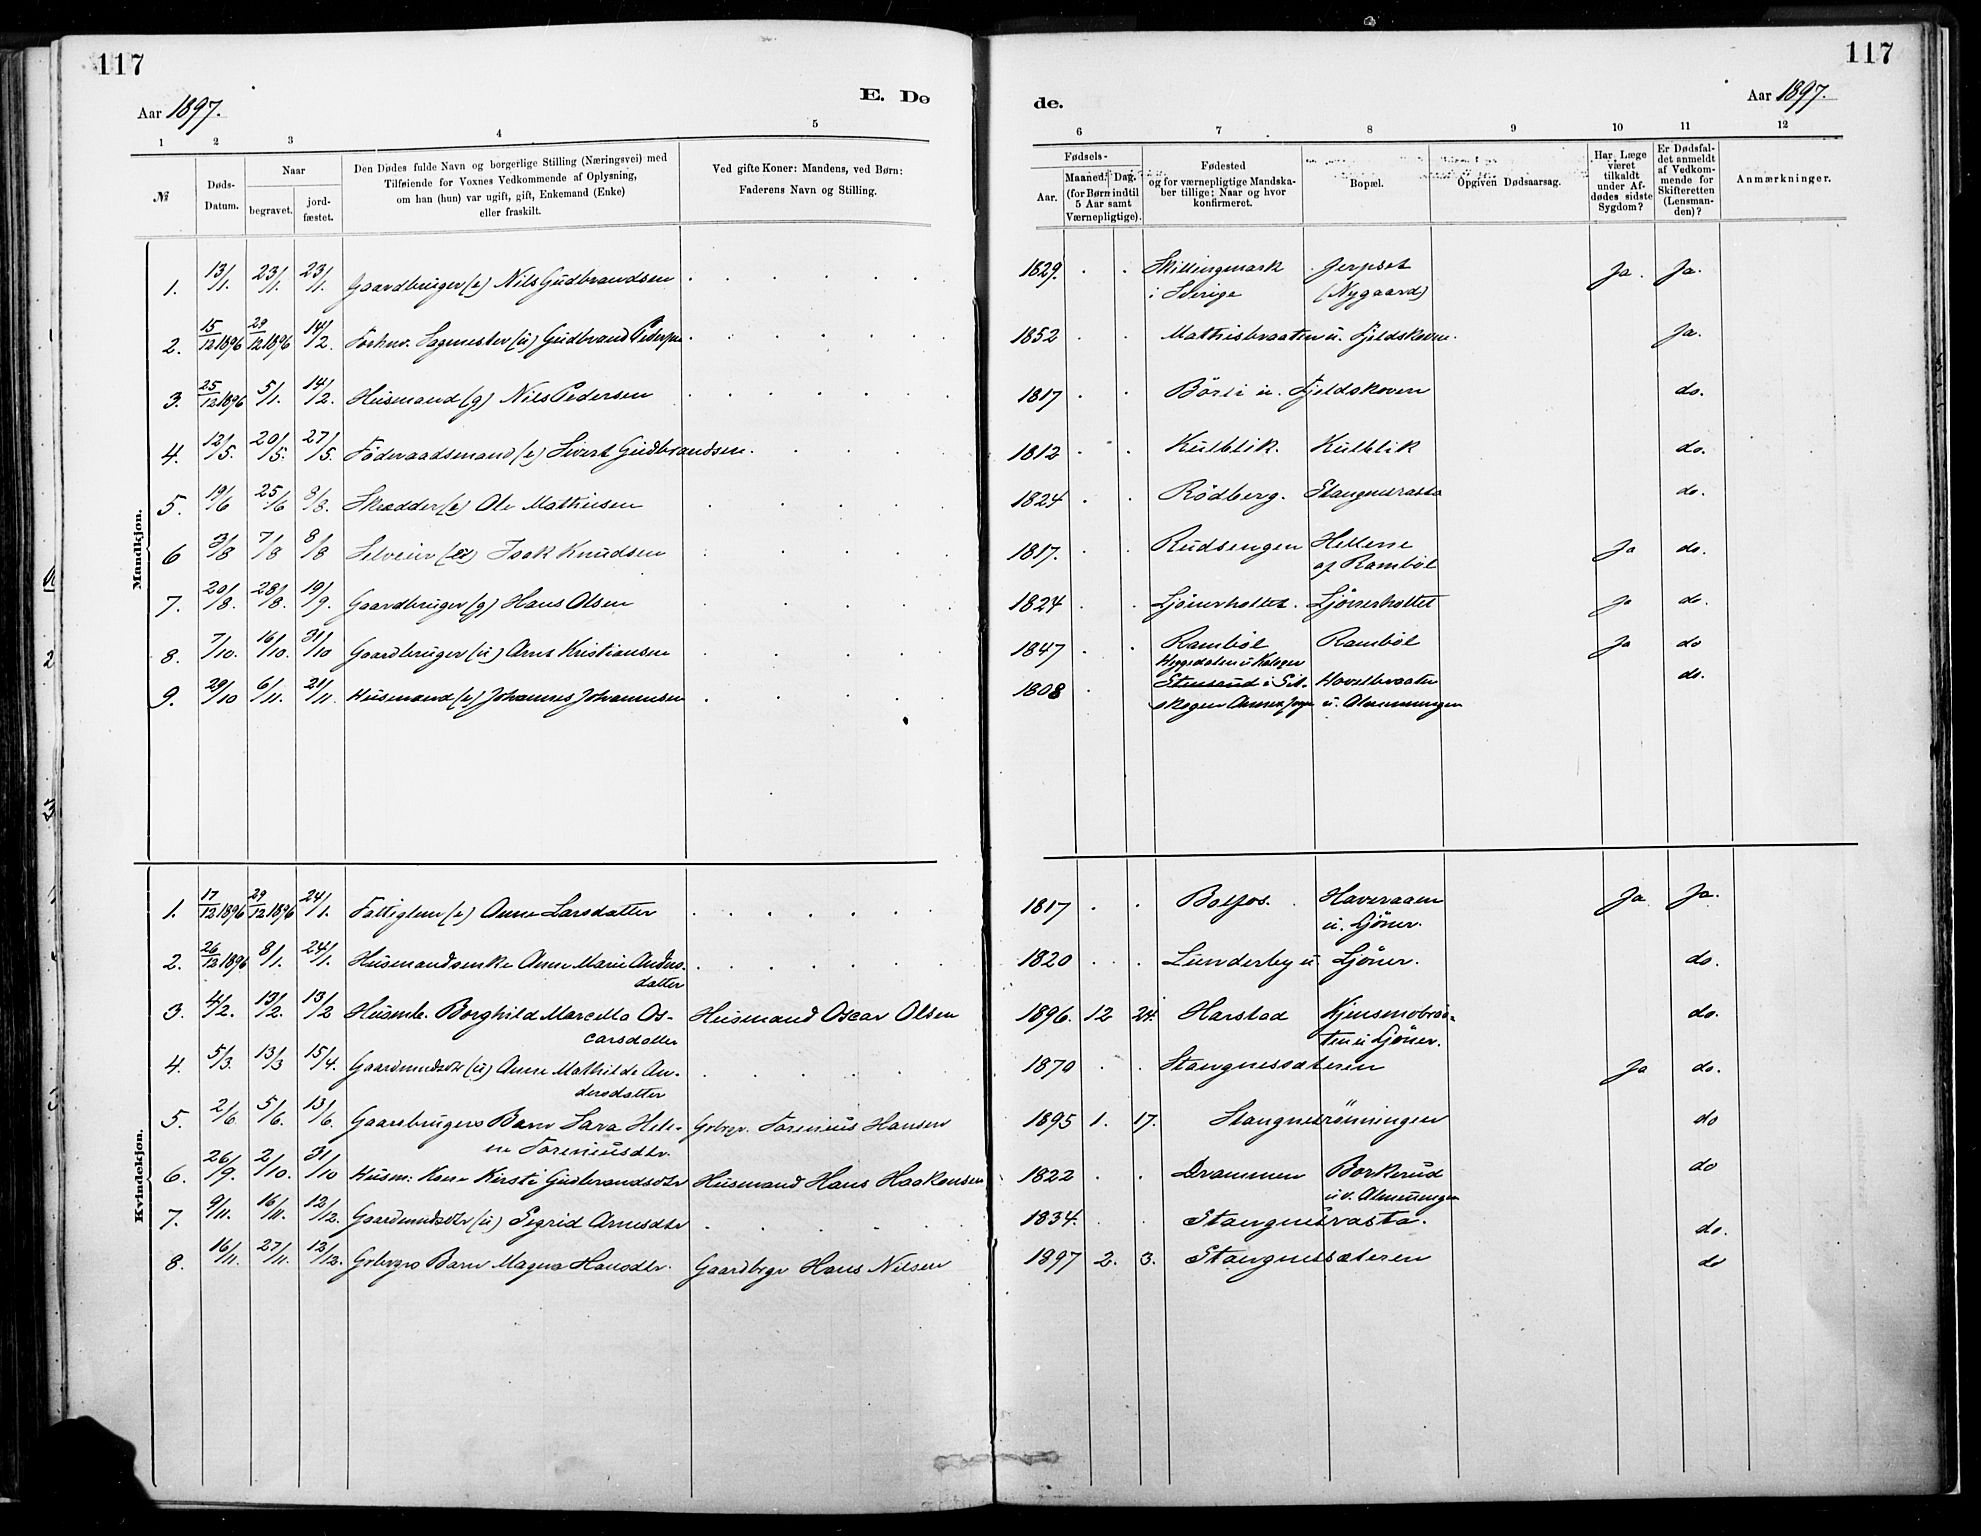 117
117
Aar 1897.
E. Dø
de.
Aar 1897.
1 2 3 4 5
6 7 8 9 10 11 12
№
Døds-Datum.
Naar
begravet.
jord-fæstet.
Den Dødes fulde Navn og borgerlige Stilling (Næringsvei) med
Tilføiende for Voxnes Vedkommende af Oplysning,
om han (hun) var ugift, gift, Enkemand (Enke)
eller fraskilt.
Ved gifte Koner: Mandens, ved Børn:
Faderens Navn og Stilling.
Fødsels-
Aar.
Maaned. Dag.
(for Børn indtil
5 Aar samt
Værnepligtige).
Fødested
og for værnepligtige Mandska-
ber tillige: Naar og hvor
konfirmeret.
Bopæl.
Opgiven Dødsaarsag.
Har Læge
været
tilkaldt
under Af-
dødes sidste
Sygdom?
Er Dødsfal-
det anmeldt
af Vedkom-
mende for
Skifteretten
(Lensman-
den)?
Anmærkninger.
Mandkjøn.
1. 13/1. 23/1. 23/1. Gaardbruger (e) Nils Gudbrandsen 1829. Skillingmark Jerpset Ja. Ja.
i Sverige (Nygaard)
2. 15/12 1896 29/12 1896 14/2. Forhnv. Sagmester (u) Gudbrand Pedersen 1852 Mathisbraaten u. Fjeldskoven. Ja.
3. 25/12 1896 5/1. 14/2. Husmand (g) Nils Pedersen 1817 Börli u. Fjeldskoven do.
4. 12/5. 20/5. 27/5. Föderaadsmand (e) Sivert Gudbrandsen. 1812 Kulblik. Kulblik do.
5. 19/6 25/6 8/8. Skrædder (e) Ole Mathiesen 1824 Rödberg. Stangnesrasta do.
6 3/8 7/8 8/8 Selveier Isak Knudsen 1817. Rudsengen Hellene Ja do.
af Ramböl
7. 20/8. 28/8. 19/9. Gaardbruger (g) Hans Olsen 1824 Ljönerholtet. Ljönerholtet Ja do.
8. 7/10. 16/10. 31/10 Gaardbruger (u) Arne Kristiansen 1847 Ramböl Ramböl Ja do
9. 29/10 6/11. 21/11. Husmand (e) Johannes Johannesen 1808 Stensrud i Set- do.
skogen Annexsogn u. Almenningen
Kvindekjøn.
1. 17/12 1896 29/12 1896 24/1. Fattiglem (e) Anne Larsdatter 1817 Bolfos. Haveraaen Ja Ja.
u. Ljöner.
2. 26/12 1896 8/1. 24/1. Husmandsenke Anne Marie Anders- 1820 Lunderby u. Ljöner. do.
datter
3. 4/2. 13/2. 13/2 Husmb. Borghild Marcella Os- Husmand Oscar Olsen 1896. 12 24. Harstad Kjensmobraa- do.
carsdatter ten u Ljöner.
4. 5/3. 13/3 15/4. Gaardmdsdtr (u) Anne Mathilde An- 1870 Stangnessæteren Ja do.
dersdatter
5. 2/6 5/6. 13/6. Gaardbrugers Barn Sara Hele- Grbrgr. Torenius Hansen 1895 1. 17. Stangnesrönningen do
ne Toreniusdtr.
6. 26/9. 2/10. 31/10 Husm: Kone Kirsti Gudbrandsdtr Husmand Hans Haakensen 1822 Drammen Borkerud do
u. Almenningen
7. 9/11. 16/11. 12/12. Gaardmdsdtr (u) Sigrid Arnesdtr 1834. Stangnesrasta. do.
8. 16/11. 27/11. 12/12. Grbrgrs Barn Magna Hansdtr. Gaardbrgr Hans Nilsen 1897 2. 3. Stangnessæteren do